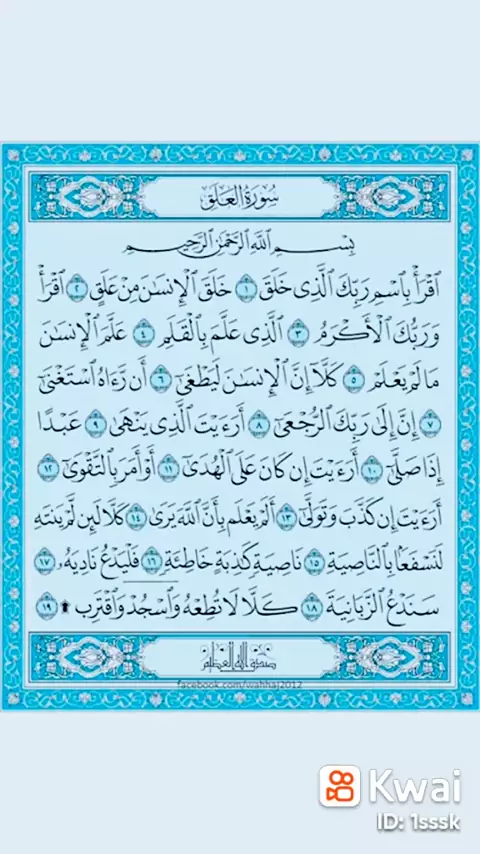 سُورَةُ العَلَقِ
بِسْمِ ٱللَّهِ ٱلرَّحْمَٰنِ ٱلرَّحِيمِ
ٱقْرَأْ بِٱسْمِ رَبِّكَ ٱلَّذِى خَلَقَ ١ خَلَقَ ٱلْإِنسَٰنَ مِنْ عَلَقٍ ٢ ٱقْرَأْ
وَرَبُّكَ ٱلْأَكْرَمُ ٣ ٱلَّذِى عَلَّمَ بِٱلْقَلَمِ ٤ عَلَّمَ ٱلْإِنسَٰنَ
مَا لَمْ يَعْلَمْ ٥ كَلَّآ إِنَّ ٱلْإِنسَٰنَ لَيَطْغَىٰٓ ٦ أَن رَّءَاهُ ٱسْتَغْنَىٰٓ
٧ إِنَّ إِلَىٰ رَبِّكَ ٱلرُّجْعَىٰٓ ٨ أَرَءَيْتَ ٱلَّذِى يَنْهَىٰ ٩ عَبْدًا
إِذَا صَلَّىٰٓ ١٠ أَرَءَيْتَ إِن كَانَ عَلَى ٱلْهُدَىٰٓ ١١ أَوْ أَمَرَ بِٱلتَّقْوَىٰٓ ١٢
أَرَءَيْتَ إِن كَذَّبَ وَتَوَلَّىٰٓ ١٣ أَلَمْ يَعْلَم بِأَنَّ ٱللَّهَ يَرَىٰ ١٤ كَلَّا لَئِن لَّمْ يَنتَهِ
لَنَسْفَعًۢا بِٱلنَّاصِيَةِ ١٥ نَاصِيَةٍ كَٰذِبَةٍ خَاطِئَةٍ ١٦ فَلْيَدْعُ نَادِيَهُۥ ١٧
سَنَدْعُ ٱلزَّبَانِيَةَ ١٨ كَلَّا لَا تُطِعْهُ وَٱسْجُدْ وَٱقْتَرِب ۩ ١٩
صدق الله العظيم
facebook.com/wahhaj2012
Kwai
ID: 1sssk